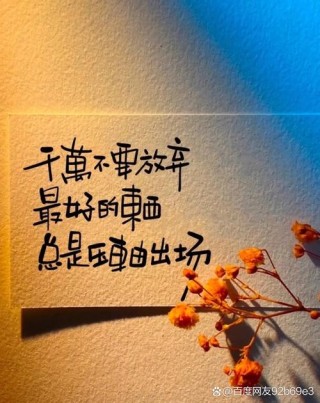 千萬不要放弃
最好的東西
总是压軸出场
@百度网友92b69e3